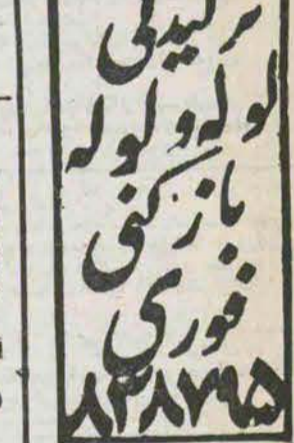 ترکیدگی
لوله و لوله
بازکنی
فوری
۸۳۸۷۹۵